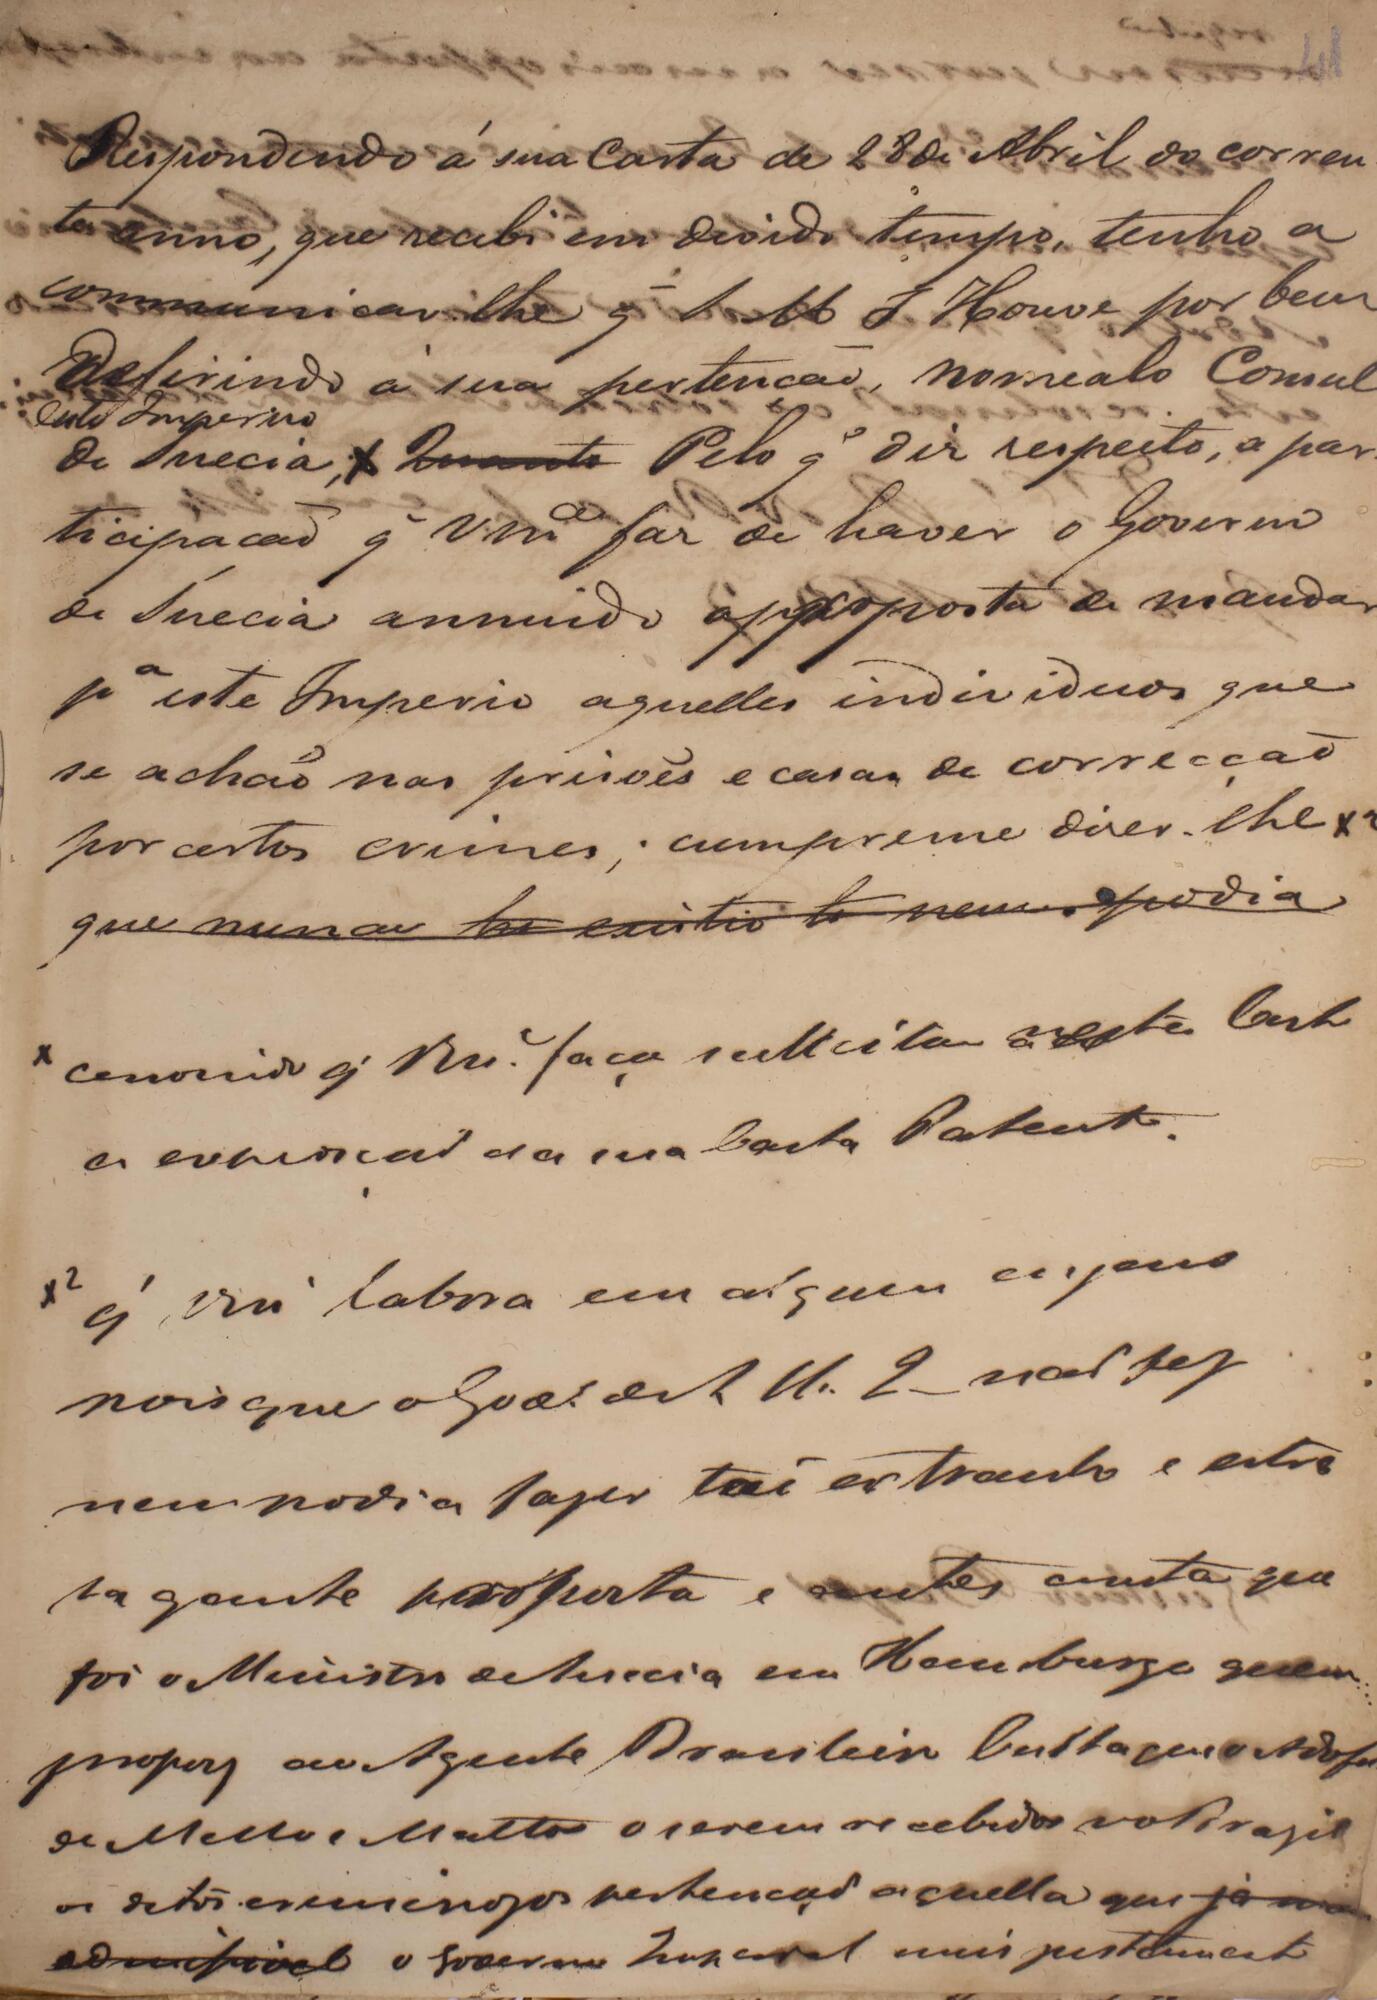 Respondendo á sua Carta de 28 de Abril do corren
te anno, que recebi em devido tempo, tenho a
communicar-lhe q̃ S M I Houve por bem
Deferindo á sua pertenção, nomealo Consul
neste Imperio
de Suecia, x Quanto Pelo q̃ diz respeito, a par
ticipação q̃ V.M.ce faz de haver o Governo
de Suecia annuido á proposta de mandar
p.a este Imperio aquelles individuos que
se achão nas prisões e casas de correcção
por certos crimes; cumpreme dizer-lhe x2
que nunca existio nem podia
x q̃ Vm.ce faça sollicitar neste
a expedição da sua Carta Patente.
x2 q̃ Vm.ce labora em algum engano
pois que o Gov.o de S. M. I. não fez
nem podia fazer tão extranha e extra
gante proposta e antes consta que
foi o Ministro de Suecia em Hamburgo quem
propoz ao Agente Brasileiro Eustaquio Adolfo
de Mello e Mattos o serem recebidos no Brazil
os ditos criminozos pertenção aquella que já
admissivel o Governo Imperial mui justamente